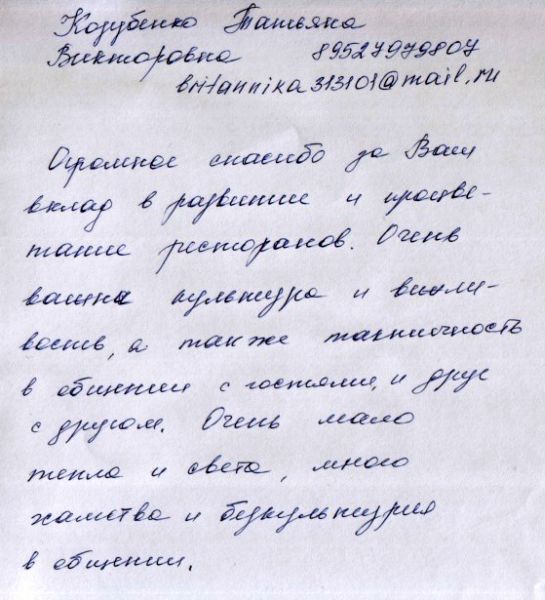 Козубенко Татьяна
Викторовна 89527979807
britannika313101@mail.ru
Огромное спасибо за Ваш
вклад в развитие и процве-
тание ресторанов. Очень
важна культура и вежли-
вость, а также тактичность
в общении с гостями, и друг
с другом. Очень мало
тепла и света, много
хамства и бескультурия
в общении.